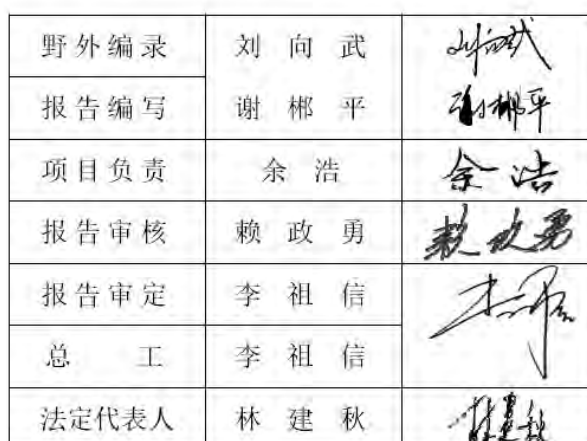 野外编录 刘向武 刘向武
报告编写 谢郴平 谢郴平
项目负责 余浩 余浩
报告审核 赖政勇 赖政勇
报告审定 李祖信
总工 李祖信
法定代表人 林建秋